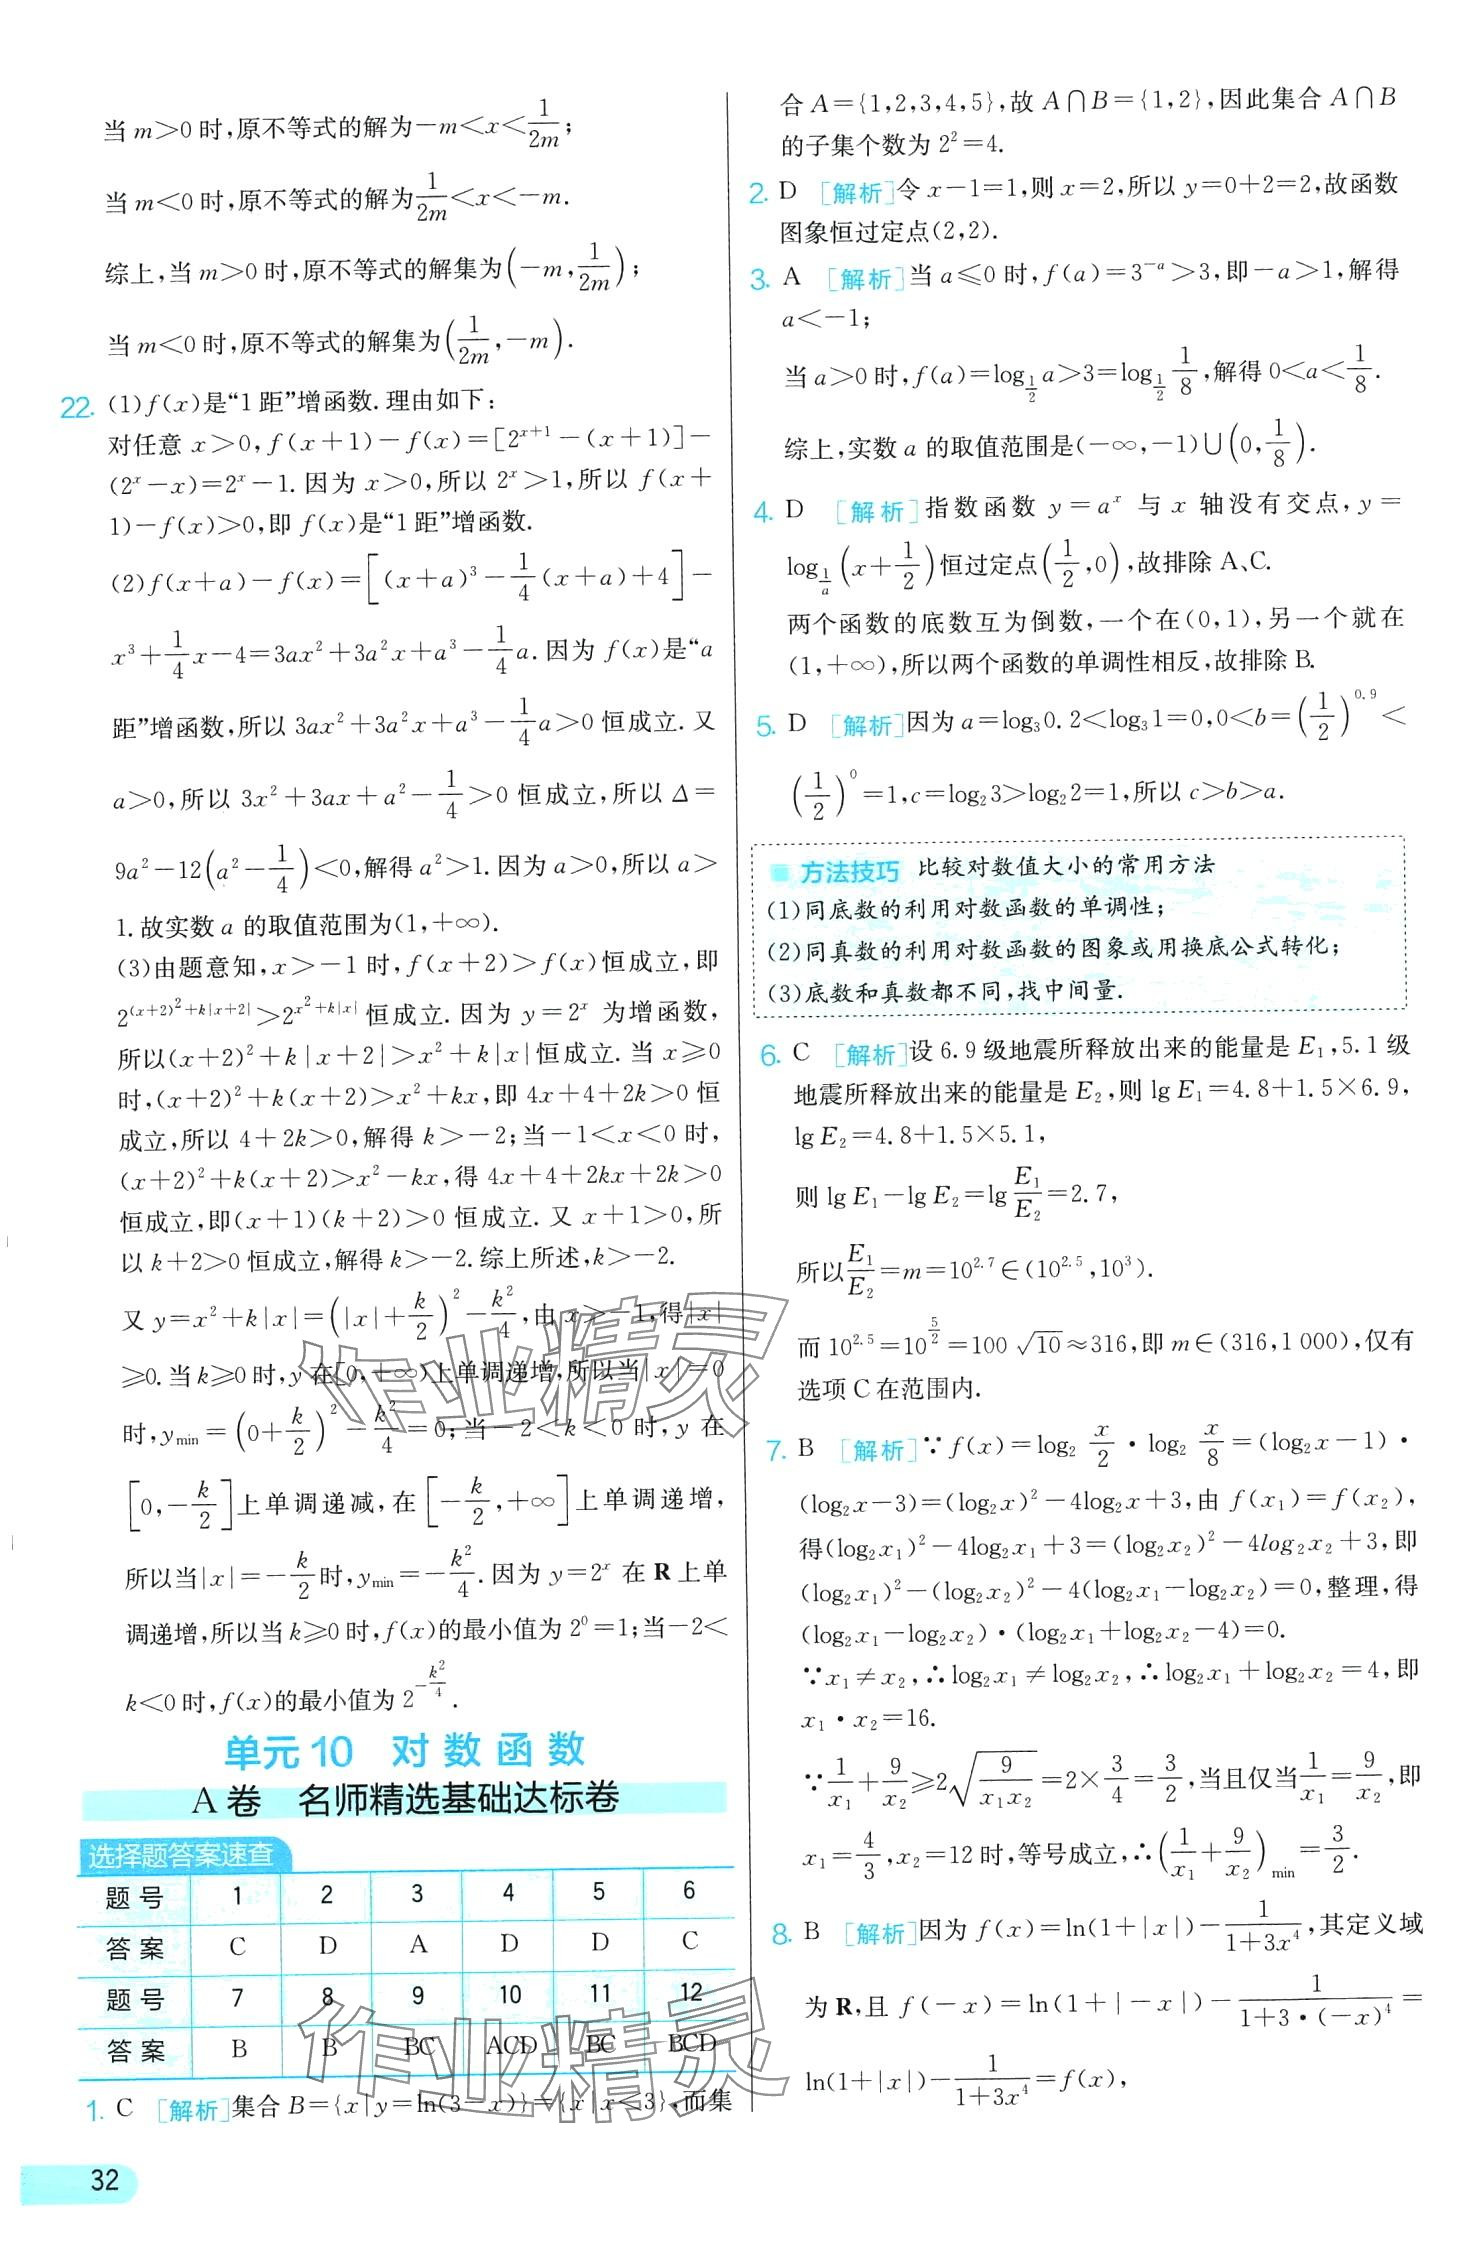 当 m>0 时,原不等式的解为 -m<x<\frac{1}{2m};
当 m<0 时,原不等式的解为\frac{1}{2m}<x<-m.
综上,当 m>0 时,原不等式的解集为(-m,\frac{1}{2m});
当 m<0 时,原不等式的解集为(\frac{1}{2m},-m).
22. (1)f(x)是“1距”增函数.理由如下:
对任意 x>0,f(x+1)-f(x)=[2^{x+1}-(x+1)]-
(2^x-x)=2^x-1.因为 x>0,所以 2^x>1,所以 f(x+
1)-f(x)>0,即 f(x)是“1距”增函数.
(2)f(x+a)-f(x)=[(x+a)^3-\frac{1}{4}(x+a)+4]-
x^3+\frac{1}{4}x-4=3ax^2+3a^2x+a^3-\frac{1}{4}a.因为 f(x)是“a
距”增函数,所以 3ax^2+3a^2x+a^3-\frac{1}{4}a>0 恒成立.又
a>0,所以 3x^2+3ax+a^2-\frac{1}{4}>0 恒成立,所以 Δ=
9a^2-12(a^2-\frac{1}{4})<0,解得 a^2>1.因为 a>0,所以 a>
1.故实数 a 的取值范围为(1,+∞).
(3)由题意知,x>-1 时,f(x+2)>f(x)恒成立,即
2^{(x+2)^2+k|x+2|}>2^{x^2+k|x|}恒成立.因为 y=2^x 为增函数,
所以(x+2)^2+k|x+2|>x^2+k|x|恒成立.当 x≥0
时,(x+2)^2+k(x+2)>x^2+kx,即 4x+4+2k>0 恒
成立,所以 4+2k>0,解得 k>-2;当-1<x<0 时,
(x+2)^2+k(x+2)>x^2-kx,得 4x+4+2kx+2k>0
恒成立,即(x+1)(k+2)>0 恒成立.又 x+1>0,所
以 k+2>0 恒成立,解得 k>-2.综上所述,k>-2.
又 y=x^2+k|x|=(|x|+\frac{k}{2})^2-\frac{k^2}{4},由 x>-1,得|x|
≥0.当 k≥0 时,y 在[0,+∞)上单调递增,所以当|x|=0
时,y_{min}=(0+\frac{k}{2})^2-\frac{k^2}{4}=0;当-2<k<0 时,y 在
[0,-\frac{k}{2}]上单调递减,在[-\frac{k}{2},+∞]上单调递增,
所以当|x|=-\frac{k}{2}时,y_{min}=-\frac{k^2}{4}.因为 y=2^x 在 R 上单
调递增,所以当 k≥0 时,f(x)的最小值为 2^0=1;当-2<
k<0 时,f(x)的最小值为 2^{-\frac{k^2}{4}}.
单元10 对数函数
A卷 名师精选基础达标卷
选择题答案速查
题号 1 2 3 4 5 6
答案 C D A D D C
题号 7 8 9 10 11 12
答案 B B BC ACD BC BCD
1. C [解析]集合 B={x|y=ln(3-x)}={x|x<3},而集
32
合 A={1,2,3,4,5},故 A∩B={1,2},因此集合 A∩B
的子集个数为 2^2=4.
2. D [解析]令 x-1=1,则 x=2,所以 y=0+2=2,故函数
图象恒过定点(2,2).
3. A [解析]当 a≤0 时,f(a)=3^{-a}>3,即-a>1,解得
a<-1;
当 a>0 时,f(a)=log_{\frac{1}{2}}a>3=log_{\frac{1}{2}}\frac{1}{8},解得 0<a<\frac{1}{8}.
综上,实数 a 的取值范围是(-∞,-1)∪(0,\frac{1}{8}).
4. D [解析]指数函数 y=a^x 与 x 轴没有交点,y=
log_{\frac{1}{a}}(x+\frac{1}{2})恒过定点(\frac{1}{2},0),故排除 A、C.
两个函数的底数互为倒数,一个在(0,1),另一个就在
(1,+∞),所以两个函数的单调性相反,故排除 B.
5. D [解析]因为 a=log_3 0.2<log_3 1=0,0<b=(\frac{1}{2})^{0.9}<
(\frac{1}{2})^0=1,c=log_2 3>log_2 2=1,所以 c>b>a.
方法技巧 比较对数值大小的常用方法
(1)同底数的利用对数函数的单调性;
(2)同真数的利用对数函数的图象或用换底公式转化;
(3)底数和真数都不同,找中间量.
6. C [解析]设 6.9 级地震所释放出来的能量是 E_1,5.1 级
地震所释放出来的能量是 E_2,则 lg E_1=4.8+1.5×6.9,
lg E_2=4.8+1.5×5.1,
则 lg E_1-lg E_2=lg\frac{E_1}{E_2}=2.7,
所以\frac{E_1}{E_2}=m=10^{2.7}∈(10^{2.5},10^3).
而 10^{2.5}=10^{\frac{5}{2}}=100\sqrt{10}≈316,即 m∈(316,1 000),仅有
选项 C 在范围内.
7. B [解析]∵f(x)=log_2\frac{x}{2}·log_2\frac{x}{8}=(log_2x-1)·
(log_2x-3)=(log_2x)^2-4log_2x+3,由 f(x_1)=f(x_2),
得(log_2x_1)^2-4log_2x_1+3=(log_2x_2)^2-4log_2x_2+3,即
(log_2x_1)^2-(log_2x_2)^2-4(log_2x_1-log_2x_2)=0,整理,得
(log_2x_1-log_2x_2)·(log_2x_1+log_2x_2-4)=0.
∵x_1≠x_2,∴log_2x_1≠log_2x_2,∴log_2x_1+log_2x_2=4,即
x_1·x_2=16.
∵\frac{1}{x_1}+\frac{9}{x_2}≥2\sqrt{\frac{9}{x_1x_2}}=2×\frac{3}{4}=\frac{3}{2},当且仅当\frac{1}{x_1}=\frac{9}{x_2},即
x_1=\frac{4}{3},x_2=12 时,等号成立,∴(\frac{1}{x_1}+\frac{9}{x_2})_{min}=\frac{3}{2}.
8. B [解析]因为 f(x)=ln(1+|x|)-\frac{1}{1+3x^4},其定义域
为 R,且 f(-x)=ln(1+|-x|)-\frac{1}{1+3·(-x)^4}=
ln(1+|x|)-\frac{1}{1+3x^4}=f(x),
作业精灵
作业精灵